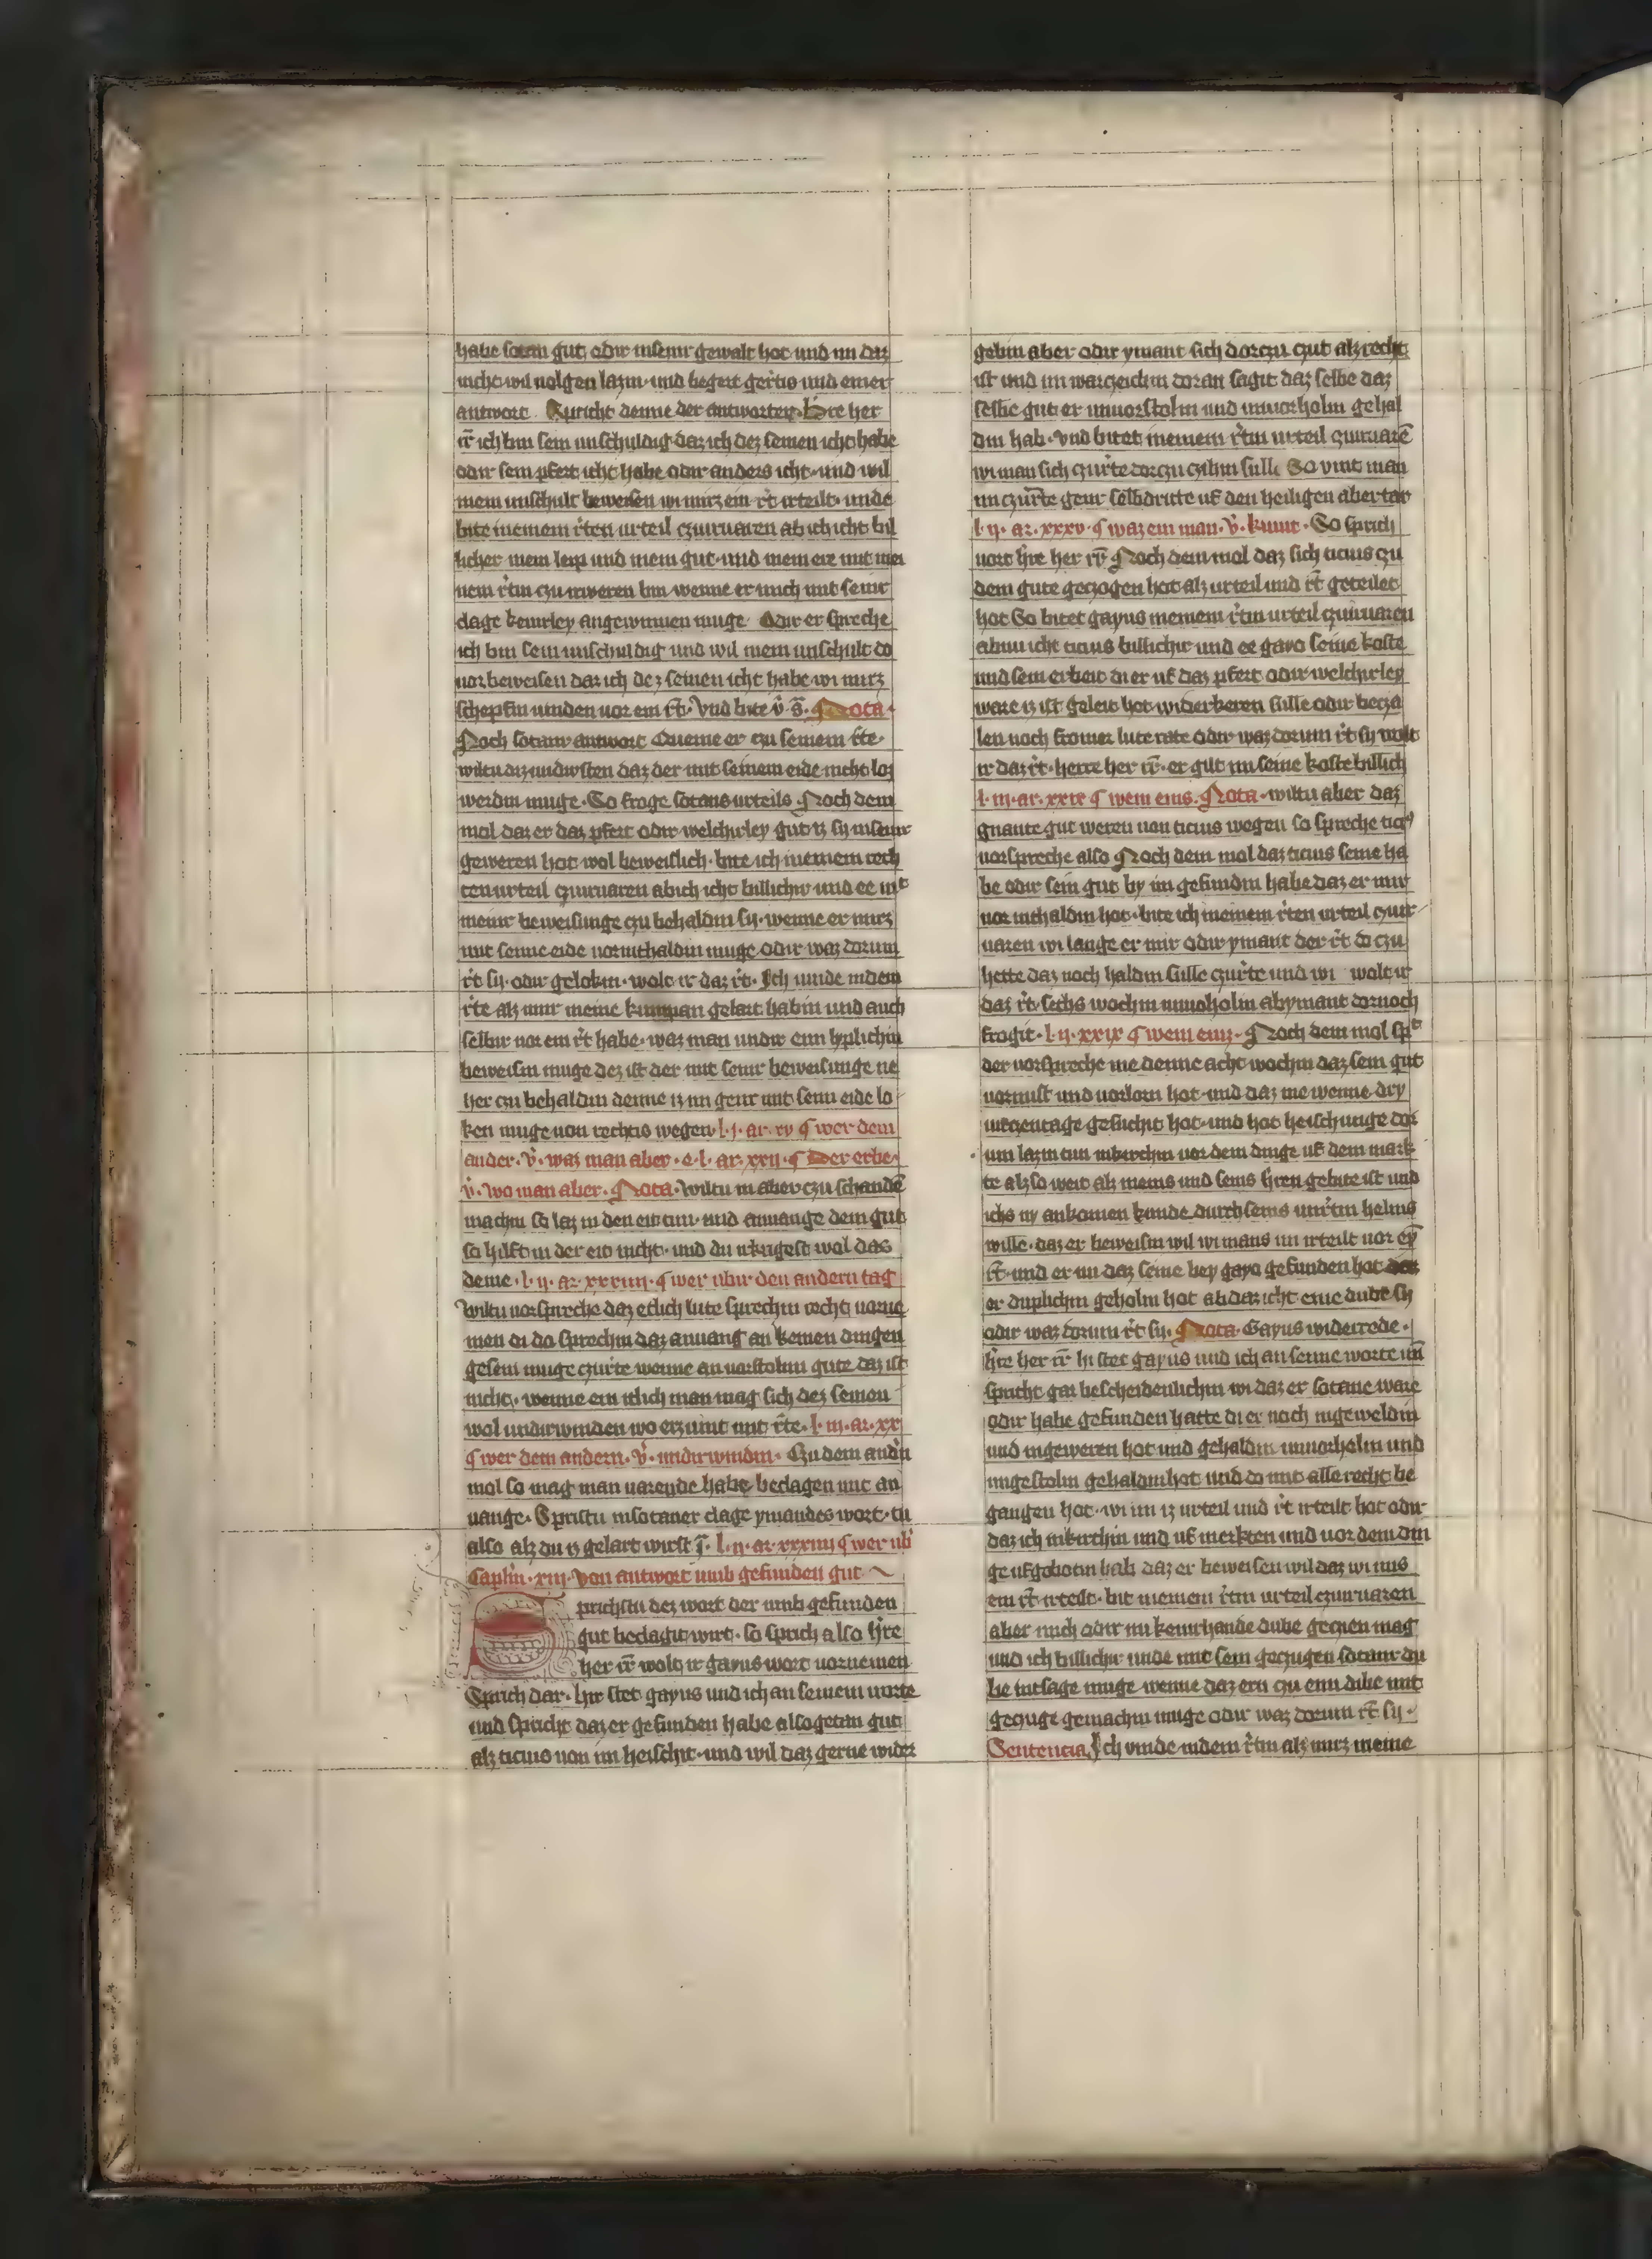 habe sotan gut odir inseinir gewalt hot und im daz
nicht wil volgen lazin und begert gerichtis und einer
antwort. Spricht denne der antworter hre her
rr ich bin sein unschuldig daz ich dez seinen icht habe
odir sein pfert icht habe odir anders icht und wil
mein unschult beweisen wi mirz ein rt irteilt. unde
bite in einem rten urteil czuirvaren ab ich icht bil
licher mein leip und mein gut und mein ere mit mei
nem rtin czu inweren bin wenne er mich mit seinir
clage keinirley angewinnen muge. Odir er spreche
ich bin sein unschuldig und wil mein unschult do
vor beweisen daz ich dez seinen icht habe wi mirz
schepfin vinden vor ein rt. Vnd bite v. s. Nota.
Noch sotanir antwort Queme er czu seinem rte
wiltu diz undirsten daz der mit seinem eide nicht los
werdin muge. So froge sotans urteils Noch dem
mol daz er daz pfert odir welchirley gut iz sy inseinir
geweren hot wol beweislich. bite ich in einem rech
ten urteil czuirvaren ab ich icht billichir und ee mit
meinir beweisunge czu behaldin sy. wenne er mirz
mit seime eide vor inthaldin muge odir waz dorum
rt sy. odir gelobin. wolt ir daz rt. Ich vinde indem
rte alz mir meine kumpan gelart habin und auch
selbir vor ein rt habe. waz man undir einn hplichin
beweisin muge dez ist der mit seinir beweisunge ne
her czu behaldin denne iz im genir mit seim eide lo
ken muge von rechtis wegen l. j. ar. xv ¶ wer dem
ander. v. waz man aber. e. l. ar. xxij. ¶ Der erbe.
v. wo man aber. Nota. Wiltu in aber czu schanden
machin so laz in den eit tun und anvange dem gut
so hilft in der eit nicht. und du irkrigest wol das
deine. l. ij. ar. xxxiiij. ¶ wer ubir den andern tag
Wiltu vorspreche daz etlich lute sprechin recht vorne
men di do sprechin daz anvang an keinen dingen
gesein muge czurte wenne an vorstolnn gute daz ist
nicht. wenne ein itlich man mag sich dez seinen
wol undirwinden wo erz vint mit rte. l. iij. ar. xx
¶ wer dem andern. v. undirwindin. Czu dem andn
mol so mag man varende habe beclagen mit an
vange. Spristu insotaner clage ymandes wort. tu
also alz du iz gelart wirst j. l. ij. ar xxxiiij ¶ wer ubi
Capitin. xiij. Von antwort umb gefunden gut
Sprichstu dez wort der umb gefunden
gut beclagit wirt. so sprich also hre
her rr wolt ir gayus wort vornemen
Sprich dar. hir stet gayus und ich an seinem worte
und spricht daz er gefunden habe alsogetan gut
alz ticius von im heischit. und wil daz gerne widir
gebin aber odir ymant sich dorczu czut alz recht
ist und im warczeichin doran sagit daz selbe daz
selbe gut er unvorstolin und unvorholin gehal
din hab. Vnd bitet in einem rtin urteil czuirvaren
wi man sich czurte dorczu czihin sulle So vint man
im czurte genir selbdritte uf den heiligen abertar
l. ij. ar. xxxv. ¶ waz ein man. v. kumt. So sprich
vort hre her rr Noch dem mol daz sich ticius czu
dem gute geczogen hot alz urteil und rt geteilet
hot So bitet gayus in einem rtin urteil czuirvaren
ab im icht ticius billichir und ee gayo seine koste
und sein erbeit di er uf daz pfert odir welchirley
ware iz ist geleit hot widirkeren sulle odir becza
len noch fromer lute rate odir waz dorum rt sy wolt
ir daz rt. herre her rr. er gilt im seine koste billich
l. iij. ar. xxix ¶ wem eins. Nota. wiltu aber daz
gnante gut weren von ticius wegen so spreche ticij
vorspreche also Noch dem mol daz ticius seine ha
be odir sein gut by im gefundin habe daz er mir
vor inthaldin hot. bite ich in einem rten urteil czuir
varen wi lange er mir odir ymant der rt do czu
hette daz noch haldin sulle czurte und wi wolt ir
daz rt. sechs wochin unvorholin ab ymant dornoch
frogit. l. ij. xxix ¶ wem eins. Noch dem mol spt
der vorspreche me denne acht wochin daz sein gut
vormist und vorlorn hot. und daz me wenne dry
virczentage gesucht hot. und hot heischunge dor
um lazin tun inkirchin vor dem dinge uf dem mark
te alzso weit alz meins und seins hren gebite ist und
ichs ny ankomen kunde durch seins unrtin helins
wille. daz er beweisin wil wi mans im irteilt vor ey
rt. und er im daz seine bey gayo gefunden hot daz
er duplichin geholin hot ab daz icht eine dube sy
odir waz dorum rt sy. Nota. Gayus widirrede.
hre her rr hi stet gayus und ich an seime worte im
spricht gar bescheidenlichin wi daz er sotane ware
odir habe gefunden hatte di er noch ingeweldin
und ingeweren hot und gehaldin unvorholin und
ungestolin gehaldin hot und do mit alle recht be
gangen hot. wi im iz urteil und rt irteilt hot odir
daz ich inkirchin und uf merkten und vor dem din
ge ufgebotin hab daz er beweisen wil daz wi ims
ein rt irteilt. bit in einem rtin urteil czuirvaren
aber mich odir im keinirhande dube geczien mag
und ich billichir unde mit sein geczugen sotanir du
be intsage muge wenne daz ern czu eim dibe mit
geczuge gemachin muge odir waz dorum rt sy.
Sentencia Ich vinde indem rtin alz mirz meine